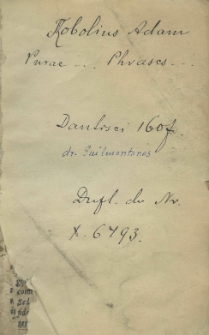 Kobolius Adam
Purae ... Phrases ...
Dantisci 160f.
dr. Guilmontanus
Dupl. do Nr.
X. 6493.